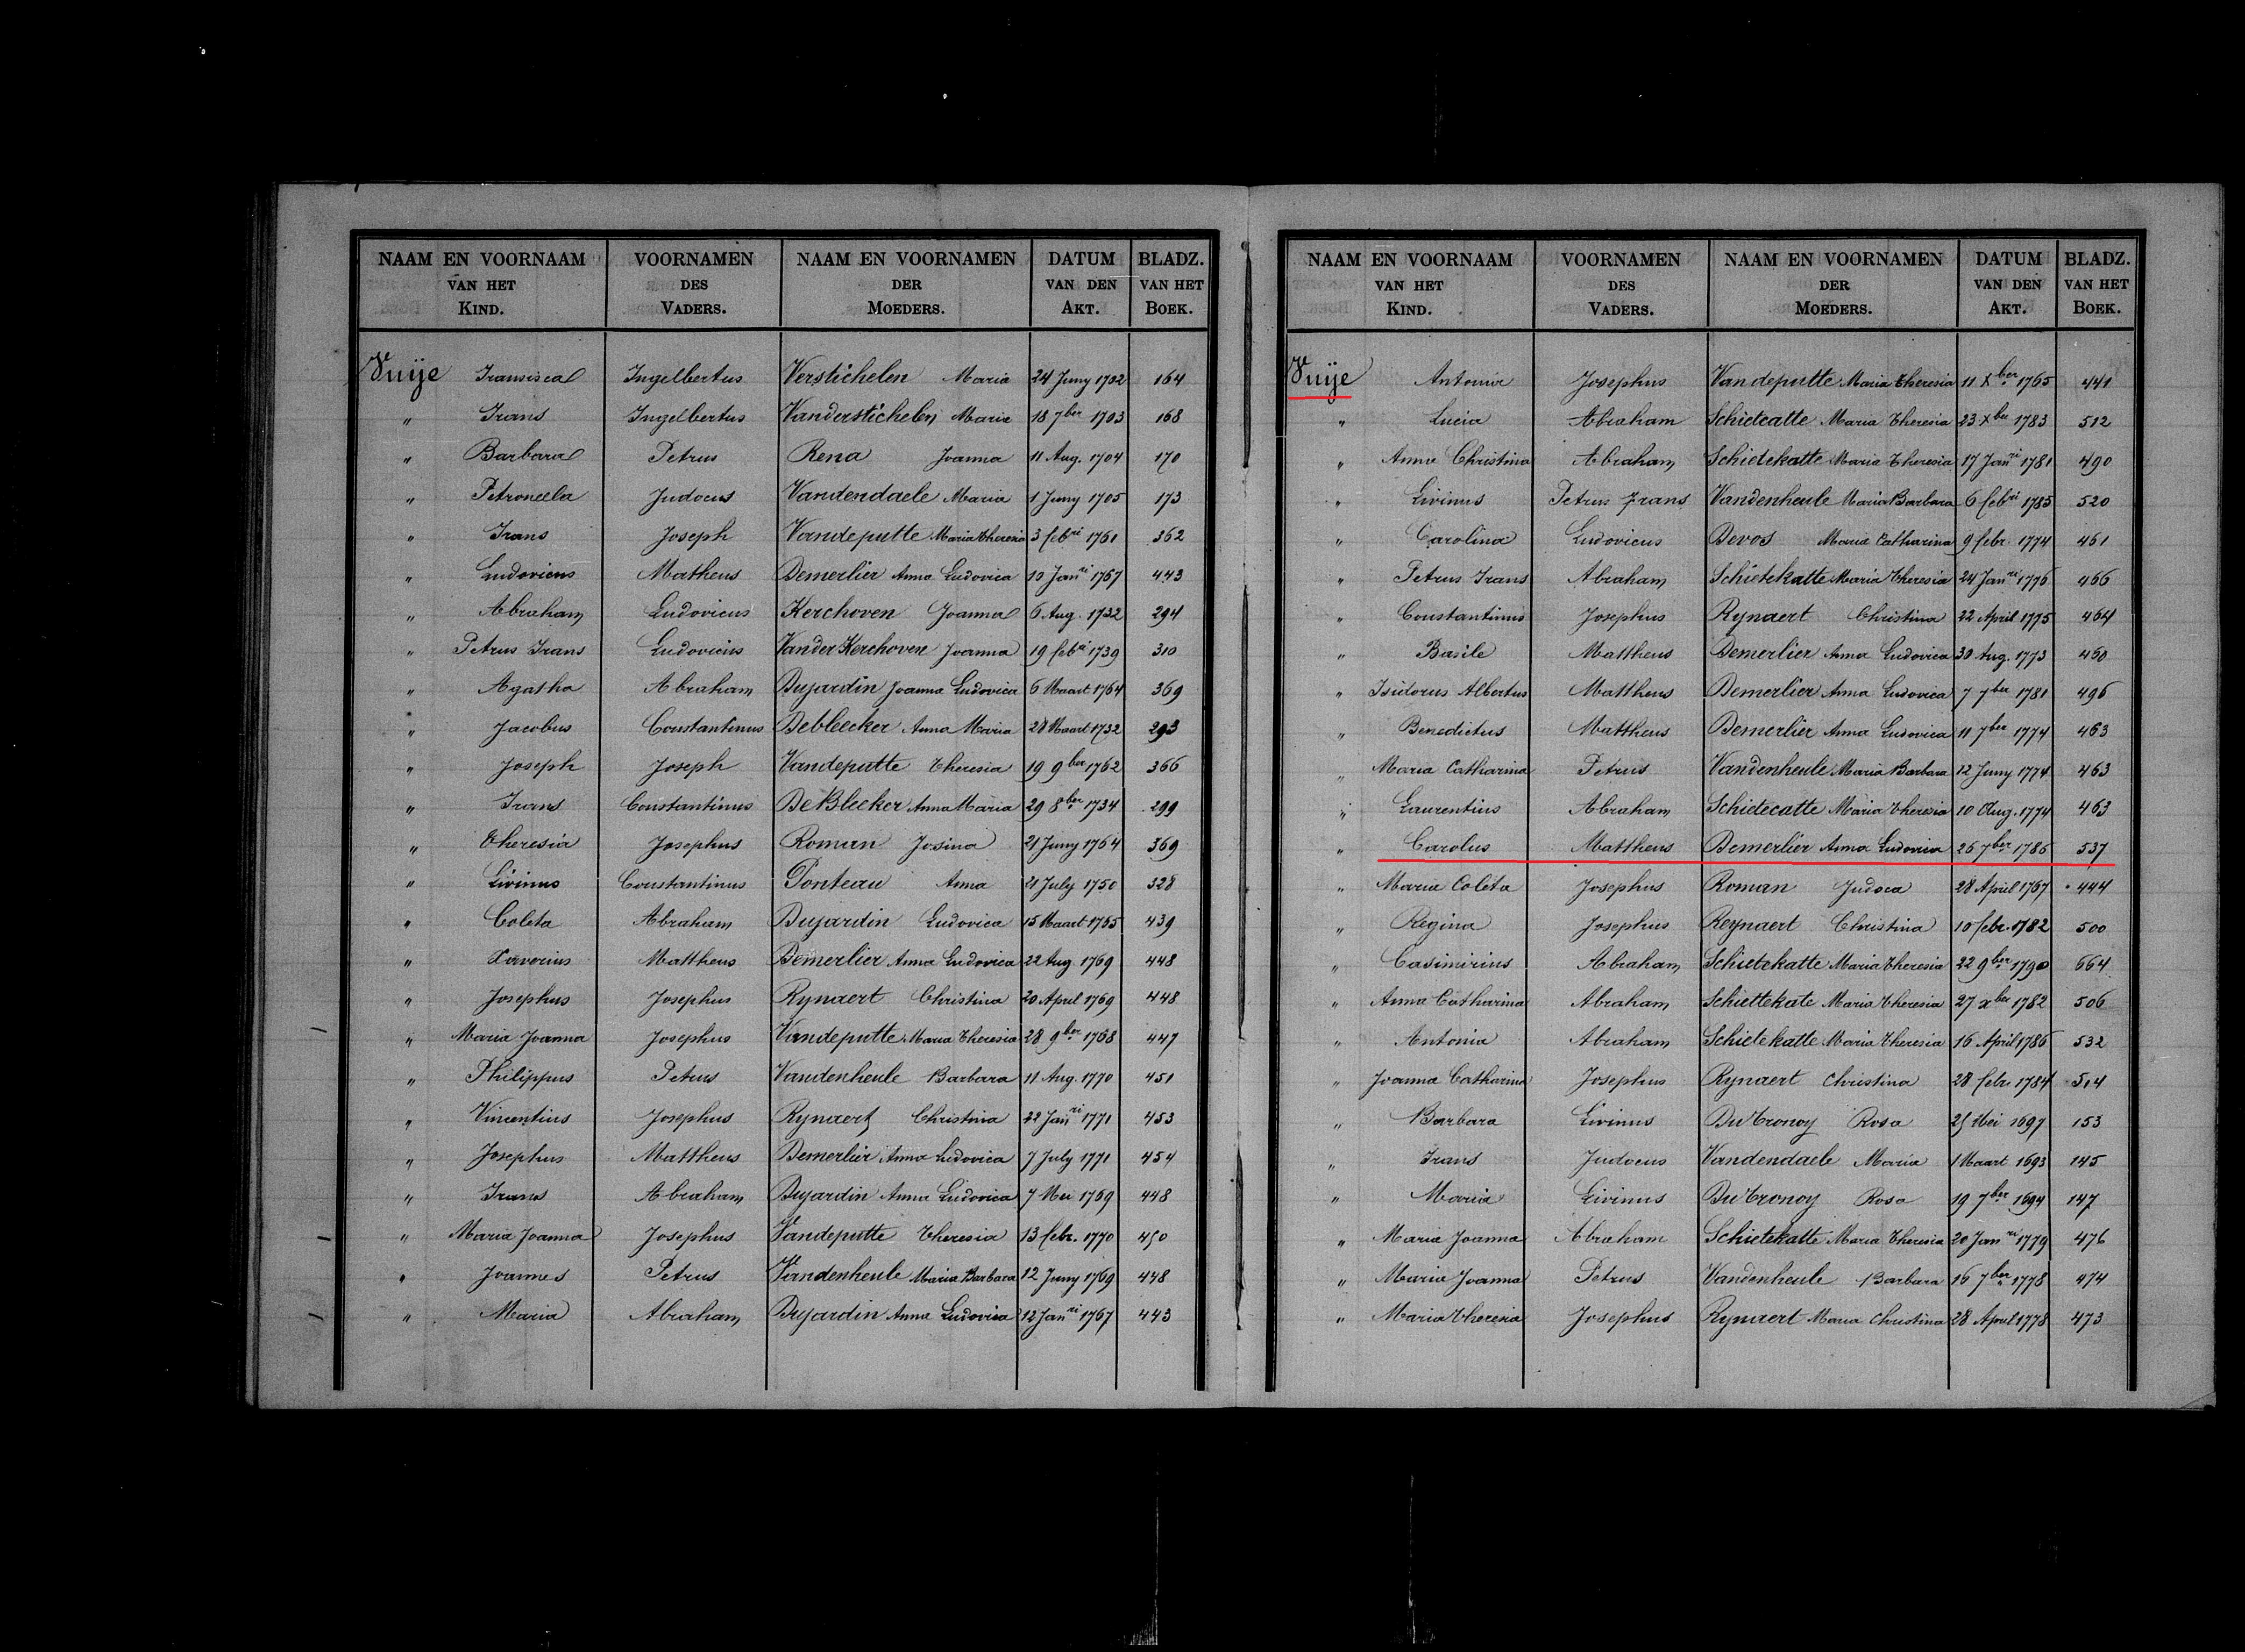 NAAM EN VOORNAAM VAN HET KIND. VOORNAMEN DES VADERS. NAAM EN VOORNAMEN DER MOEDERS. DATUM VAN DEN AKT. BLADZ. VAN HET BOEK.
Vuÿe Fransisca Ingelbertus Verstichelen Maria 24 Juny 1702 164
" Frans Ingelbertus Vanderstichelen Maria 18 7ber 1703 168
" Barbara Petrus Rena Joanna 11 Aug. 1704 170
" Petroneela Judocus Vandendaele Maria 1 Juny 1705 173
" Frans Joseph Vandeputte Maria Theresia 3 febri 1761 362
" Ludovicus Matheus Demerlier Anna Ludovica 10 Janri 1767 443
" Abraham Ludovicus Kerchoven Joanna 6 Aug. 1732 294
" Petrus Frans Ludovicus Vander Kerchoven Joanna 19 febri 1739 310
" Agatha Abraham Dujardin Joanna Ludovica 6 Maart 1764 369
" Jacobus Constantinus Debleecker Anna Maria 28 Maart 1732 293
" Joseph Joseph Vandeputte Theresia 19 9ber 1762 366
" Frans Constantinus De Bleeker Anna Maria 29 8ber 1734 299
" Theresia Josephus Roman Josina 21 Juny 1764 369
" Livinus Constantinus Ponteau Anna 21 July 1750 328
" Coleta Abraham Dujardin Ludovica 15 Maart 1765 439
" Xaverius Mattheus Demerlier Anna Ludovica 22 Aug. 1769 448
" Josephus Josephus Rynaert Christina 20 April 1769 448
" Maria Joanna Josephus Vandeputte Maria Theresia 28 9ber 1768 447
" Philippus Petrus Vandenheule Barbara 11 Aug. 1770 451
" Vincentius Josephus Rynaert Christina 22 Janri 1771 453
" Josephus Mattheus Demerlier Anna Ludovica 7 July 1771 454
" Frans Abraham Dujardin Anna Ludovica 7 Mei 1769 448
" Maria Joanna Josephus Vandeputte Theresia 13 febr. 1770 450
" Joannes Petrus Vandenheule Maria Barbara 12 Juny 1769 448
" Maria Abraham Dujardin Anna Ludovica 12 Janri 1767 443
NAAM EN VOORNAAM VAN HET KIND. VOORNAMEN DES VADERS. NAAM EN VOORNAMEN DER MOEDERS. DATUM VAN DEN AKT. BLADZ. VAN HET BOEK.
Vuÿe Antonia Josephus Vandeputte Maria Theresia 11 Xber 1765 441
" Lucia Abraham Schietcatte Maria Theresia 23 xber 1783 512
" Anna Christina Abraham Schietekatte Maria Theresia 17 Janri 1781 490
" Livinus Petrus Frans Vandenheule Maria Barbara 6 febri 1785 520
" Carolina Ludovicus Devos Maria Catharina 9 febr. 1774 461
" Petrus Frans Abraham Schietekatte Maria Theresia 24 Janri 1776 466
" Constantinus Josephus Rynaert Christina 22 April 1775 464
" Basile Mattheus Demerlier Anna Ludovica 30 Aug. 1773 460
" Isidorus Albertus Mattheus Demerlier Anna Ludovica 7 7ber 1781 496
" Benedictus Mattheus Demerlier Anna Ludovica 11 7ber 1774 463
" Maria Catharina Petrus Vandenheule Maria Barbara 12 Juny 1774 463
" Laurentius Abraham Schietecatte Maria Theresia 10 Aug. 1774 463
" Carolus Mattheus Demerlier Anna Ludovica 26 7ber 1786 537
" Maria Coleta Josephus Roman Judoca 28 April 1767 444
" Regina Josephus Reynaert Christina 10 febr. 1782 500
" Casimirius Abraham Schietekatte Maria Theresia 22 9ber 1790 664
" Anna Catharina Abraham Schiettekate Maria Theresia 27 xber 1782 506
" Antonia Abraham Schietekatte Maria Theresia 16 April 1786 532
" Joanna Catharina Josephus Rynaert Christina 28 febr. 1784 514
" Barbara Livinus Du Tronoy Rosa 25 Mei 1697 153
" Frans Judocus Vandendaele Maria 1 Maart 1693 145
" Maria Livinus Du Tronoy Rosa 19 7ber 1694 147
" Maria Joanna Abraham Schietekatte Maria Theresia 20 Janri 1779 476
" Maria Joanna Petrus Vandenheule Barbara 16 7ber 1778 474
" Maria Theresia Josephus Rynaert Maria Christina 28 April 1778 473